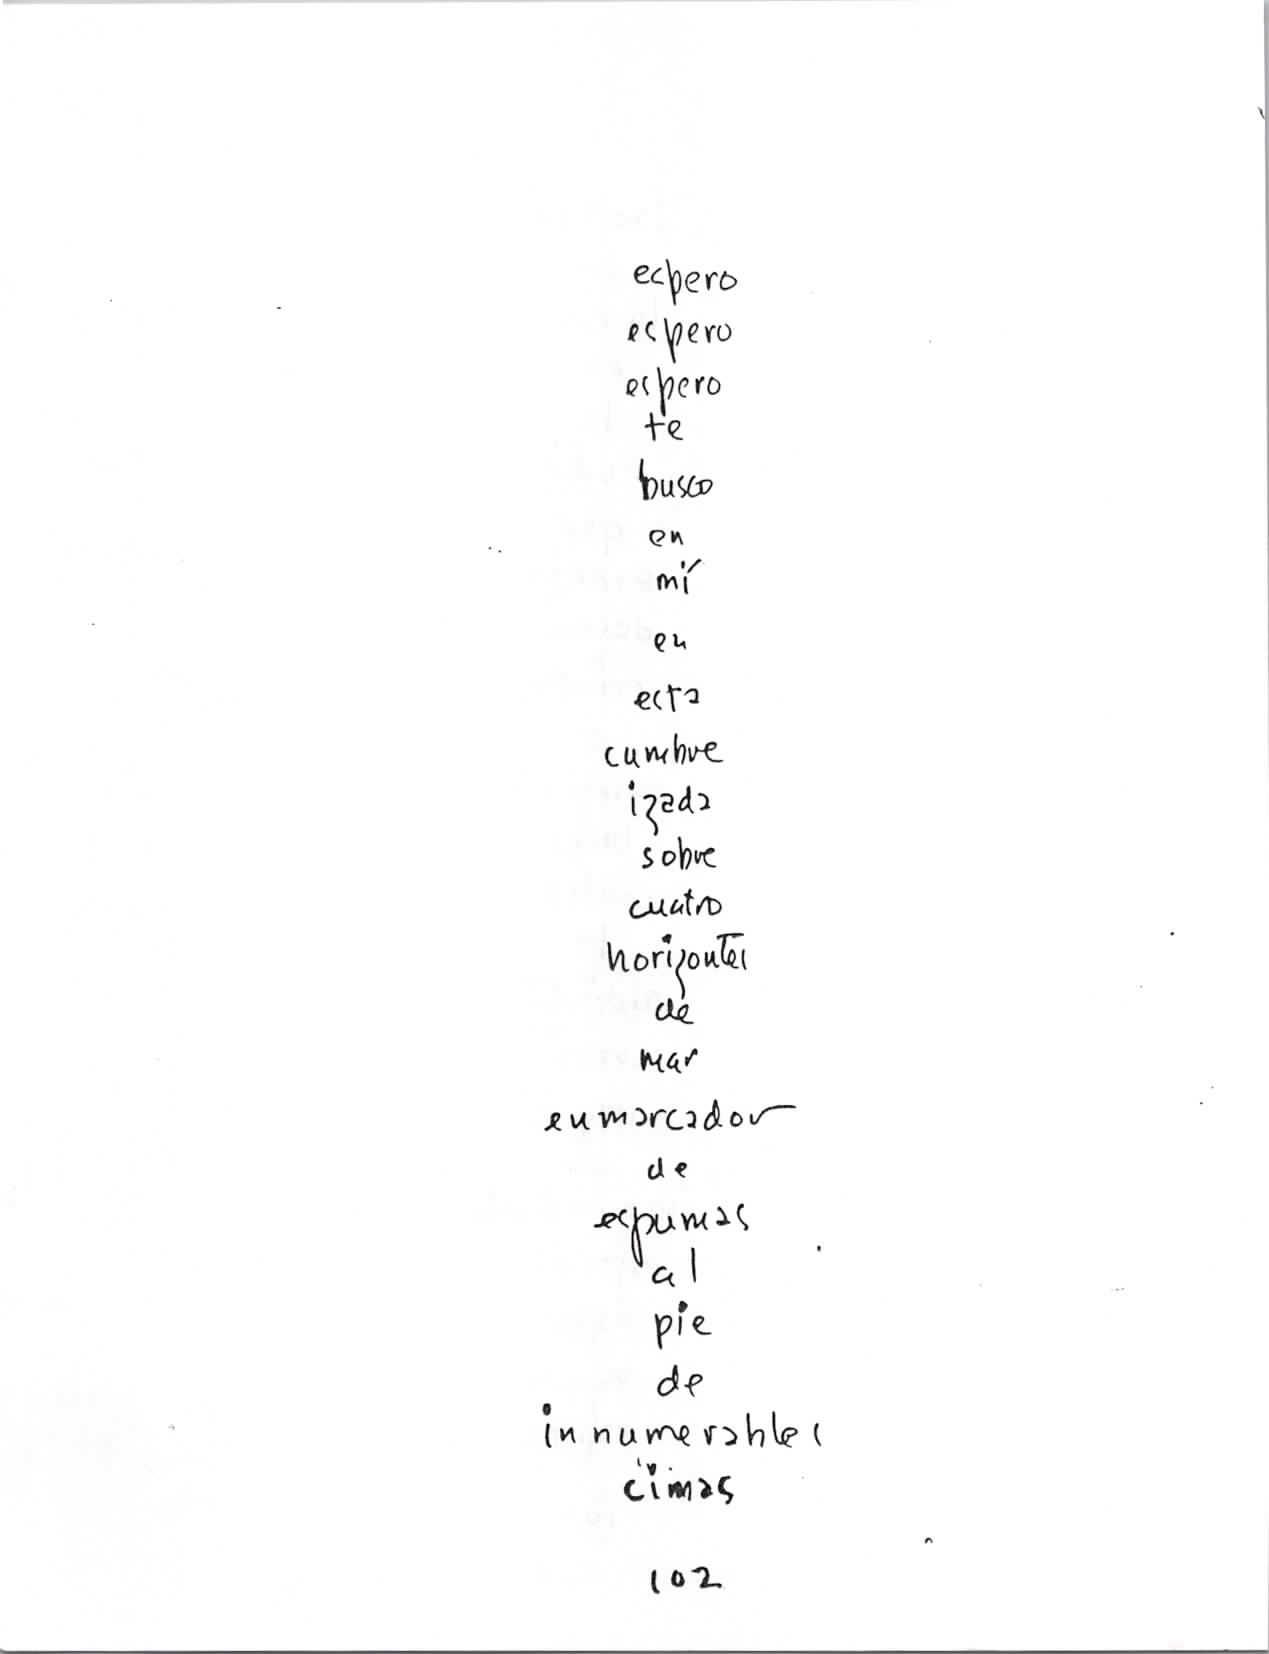 espero
espero
espero
te
busco
en
mí
en
esta
cumbre
izada
sobre
cuatro
horizontes
de
mar
enmarcador
de
espumas
al
pie
de
innumerables
cimas
102